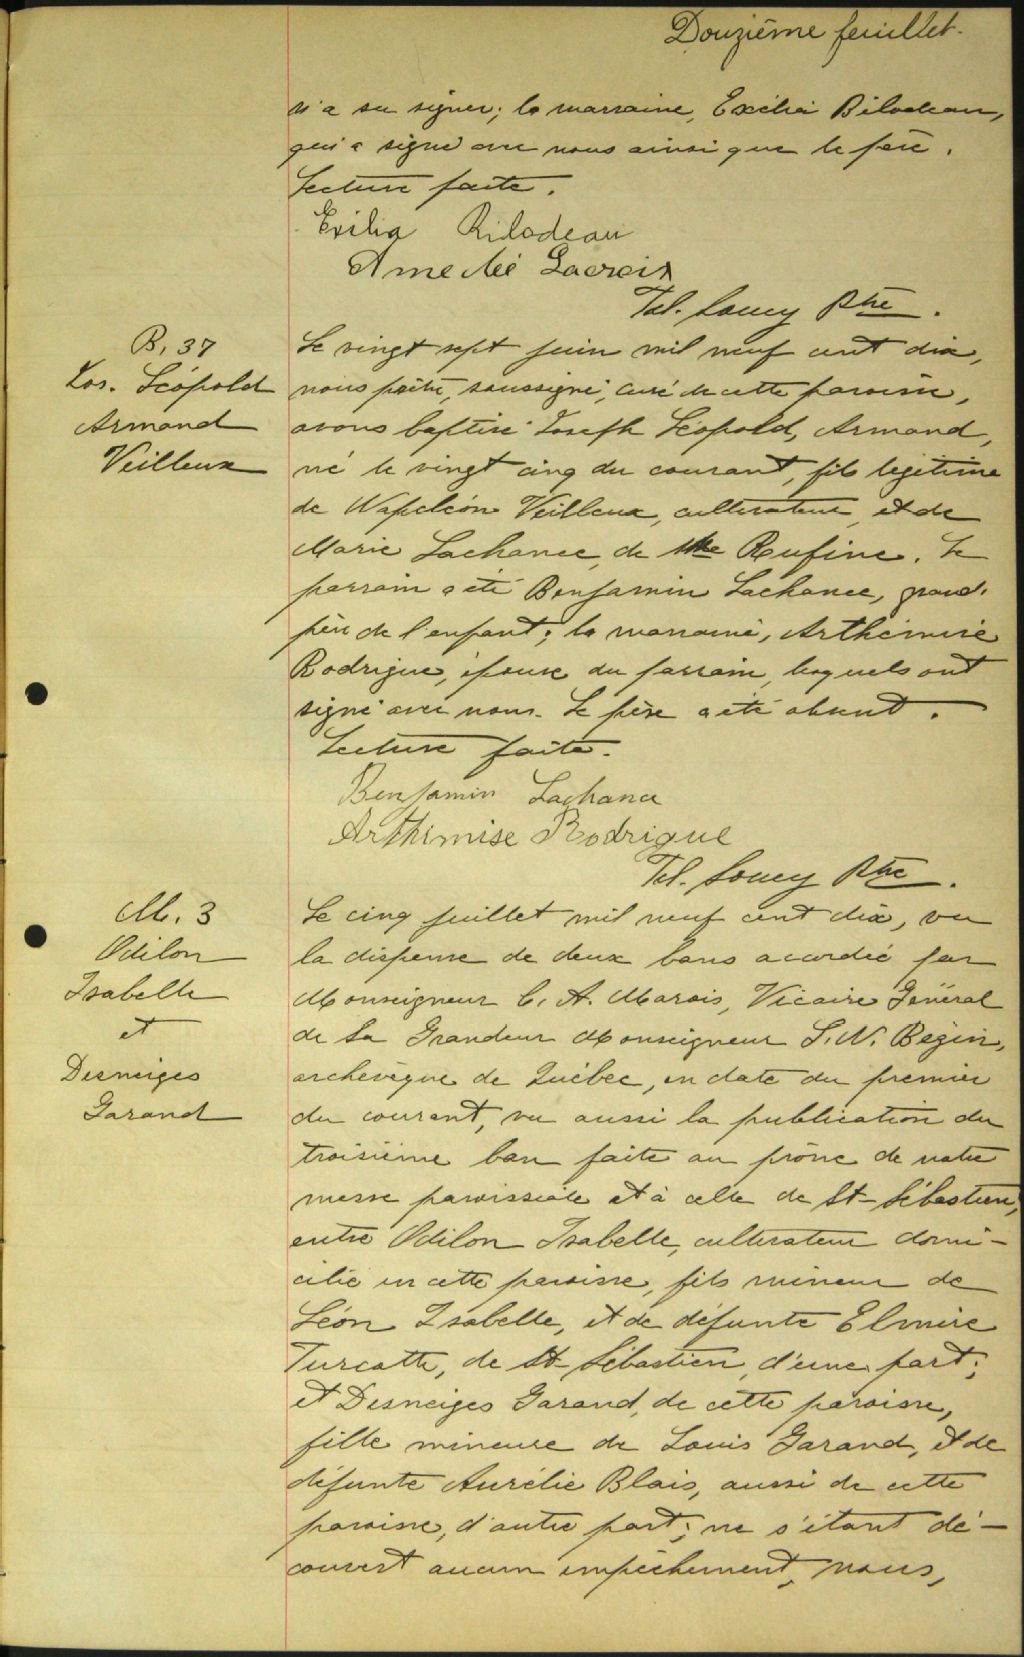 Douzième feuillet.
n'a su signer; la marraine, Exilia Bilodeau,
qui a signé avec nous ainsi que le père.
Lecture faite.
Exilia Bilodeau
Amedée Lacroix
Tél. Soucy Ptre.
B. 37
Jos. Léopold
Armand
Veilleux
Le vingt sept juin mil neuf cent dix,
nous prêtre, soussigné, curé de cette paroisse,
avons baptisé Joseph Léopold, Armand,
né le vingt cinq du courant, fils légitime
de Napoléon Veilleux, cultivateur, et de
Marie Lachance, de Ste Rufine. Le
parrain a été Benjamin Lachance, grand-
père de l'enfant; la marraine, Arthémise
Rodrigue, épouse du parrain, lesquels ont
signé avec nous. Le père a été absent.
Lecture faite.
Benjamin Lachance
Arthimise Rodrigue
Tél. Soucy Ptre.
M. 3
Odilon
Isabelle
et
Desneiges
Garand
Le cinq juillet mil neuf cent dix, vu
la dispense de deux bans accordée par
Monseigneur C. A. Marois, Vicaire Général
de Sa Grandeur Monseigneur L. N. Bégin,
archevêque de Québec, en date du premier
du courant, vu aussi la publication du
troisième ban faite au prône de notre
messe paroissiale et à celle de St-Sébastien,
entre Odilon Isabelle, cultivateur domi-
cilié en cette paroisse, fils mineur de
Léon Isabelle, et de défunte Elmire
Turcotte, de St-Sébastien, d'une part;
et Desneiges Garand, de cette paroisse,
fille mineure de Louis Garand, et de
défunte Aurélie Blais, aussi de cette
paroisse, d'autre part; ne s'étant dé-
couvert aucun empêchement, nous,